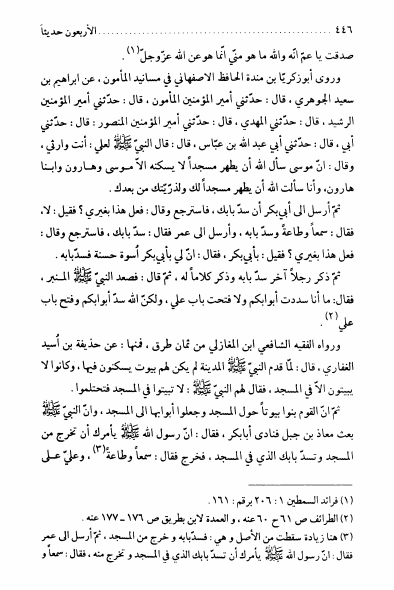 ٤٤٦ ........................................ الأربعون حديثاً
صدقت يا عمّ انّه والله ما هو منّي انّما هو عن الله عزّوجلّ(١).
وروى أبوزكريّا بن مندة الحافظ الاصفهاني في مسانيد المأمون، عن ابراهيم بن
سعيد الجوهري، قال: حدّثني أمير المؤمنين المأمون، قال: حدّثني أمير المؤمنين
الرشيد، قال: حدّثني المهدي، قال: حدّثني أمير المؤمنين المنصور: قال: حدّثني
أبي، قال: حدّثني أبي عبد الله بن عبّاس، قال: قال النبيّ ﷺ لعلي: أنت وارثي،
وقال: انّ موسى سأل الله أن يطهر مسجداً لا يسكنه الاّ موسى وهارون وابنا
هارون، وأنا سألت الله أن يطهر مسجداً لك ولذرّيّتك من بعدك.
ثمّ أرسل الى أبي بكر أن سدّ بابك، فاسترجع وقال: فعل هذا بغيري؟ فقيل: لا،
فقال: سمعاً وطاعةً وسدّ بابه، وأرسل الى عمر فقال: سدّ بابك، فاسترجع وقال:
فعل هذا بغيري؟ فقيل: بأبي بكر، فقال: انّ لي بأبي بكر أسوة حسنة فسدّ بابه.
ثمّ ذكر رجلاً آخر سدّ بابه وذكر كلاماً له، ثمّ قال: فصعد النبيّ ﷺ المنبر،
فقال: ما أنا سددت أبوابكم ولا فتحت باب علي، ولكنّ الله سدّ أبوابكم وفتح باب
علي(٢).
ورواه الفقيه الشافعي ابن المغازلي من ثمان طرق، فمنها: عن حذيفة بن أُسيد
الغفاري، قال: لمّا قدم النبيّ ﷺ المدينة لم يكن لهم بيوت يسكنون فيها، وكانوا لا
يبيتون الاّ في المسجد، فقال لهم النبيّ ﷺ: لا تبيتوا في المسجد فتحتلموا.
ثمّ انّ القوم بنوا بيوتاً حول المسجد وجعلوا أبوابها الى المسجد، وانّ النبيّ ﷺ
بعث معاذ بن جبل فنادى أبابكر، فقال: انّ رسول الله ﷺ يأمرك أن تخرج من
المسجد وتسدّ بابك الذي في المسجد، فخرج فقال: سمعاً وطاعةً(٣)، وعليّ على
(١) فرائد السمطين ١: ٢٠٦ برقم: ١٦١.
(٢) الطرائف ص ٦١ ح ٦٠ عنه، و العمدة لابن بطريق ص ١٧٦ – ١٧٧ عنه.
(٣) هنا زيادة سقطت من الأصل و هي: فسدّ بابه و خرج من المسجد، ثمّ أرسل الى عمر
فقال: انّ رسول الله ﷺ يأمرك أن تسدّ بابك الذي في المسجد و تخرج منه، فقال: سمعاً و